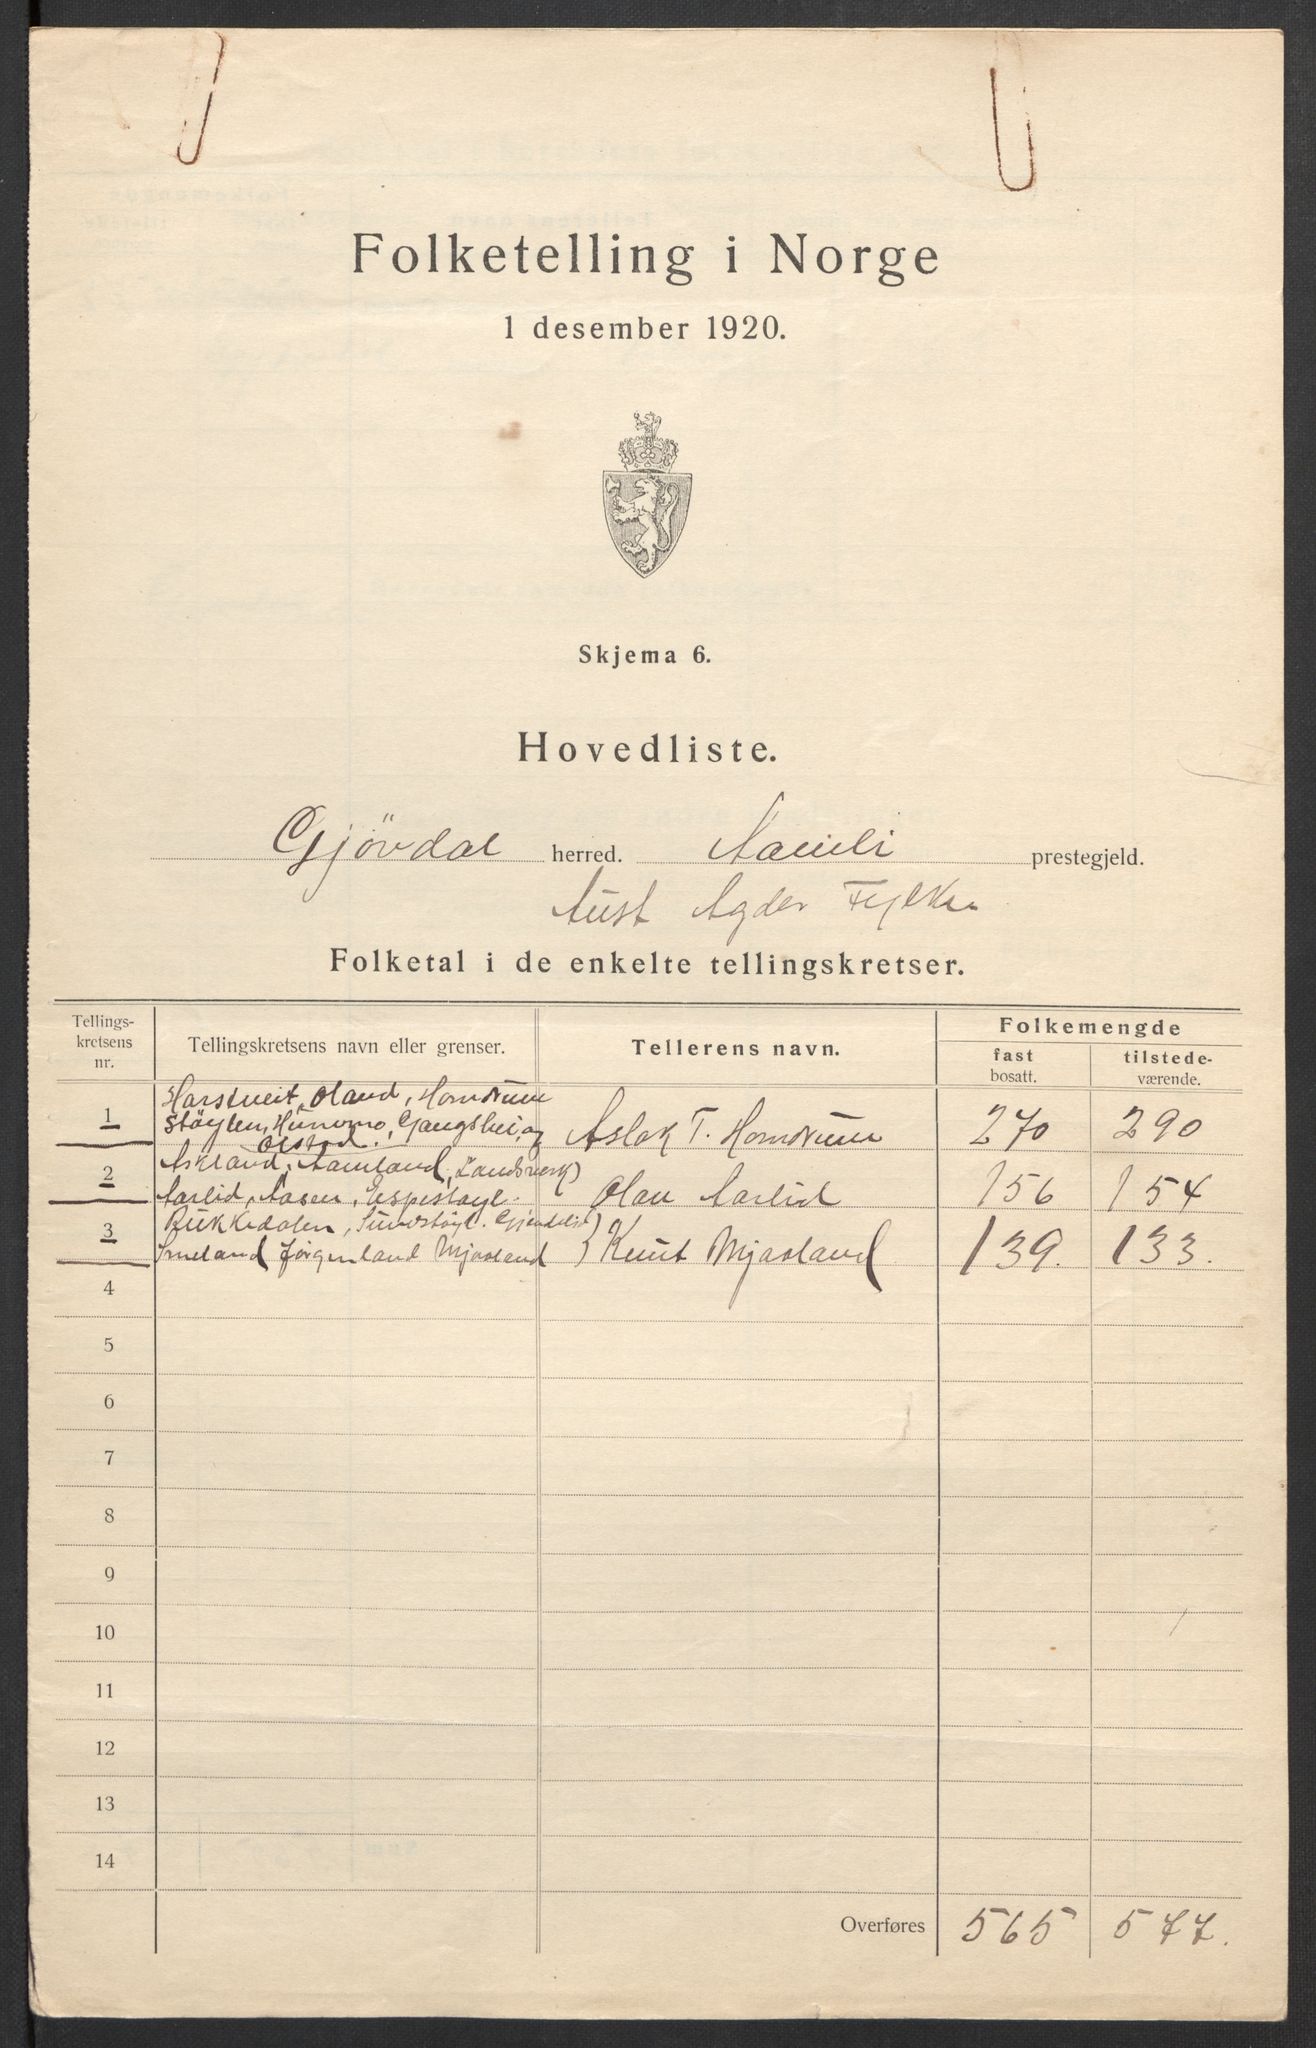 Folketelling i Norge
1 desember 1920.
Skjema 6.
Hovedliste.
Gjövdal herred. Aamli prestegjeld.
Aust Agder Fylke
Folketal i de enkelte tellingskretser.
Tellings-
kretsens
nr.
Tellingskretsens navn eller grenser.
Tellerens navn.
Folkemengde
fast
bosatt.
tilstede-
værende.
Harstveit, Oland, Homdrum
1 Støylen, Hunemo, Gangshei, og Aslak T. Homdrum 270 290
Olstad.
Askland, Aamland, Landsverk)
2 Aarlid, Aasen, Espestøyl. Olav Aarlid 156 154
Bukkedalen, Sundstøyl. )
3 Smeland Jørgenland Mjaaland ) Knut Mjaaland 139. 133.
4
5
6
7
8
9
10
11
12
13
14
Overføres 565 577.